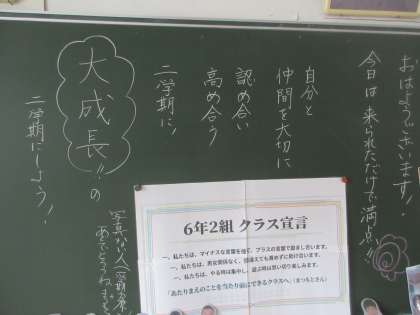 おはようございます!
今日は来られただけで満点!!
自分と
仲間を大切に
認め合い
高め合う
二学期に!
大成長!!の
二学期にしよう!
6年2組 クラス宣言
一、私たちは、マイナスな言葉を捨て、プラスの言葉で励まし合います。
一、私たちは、男女関係なく、間違えても責めずに助け合います。
一、私たちは、やる時は集中し、遊ぶ時は思い切り楽しみます。
「あたりまえのことを当たり前にできるクラスへ」(まつもとさん)